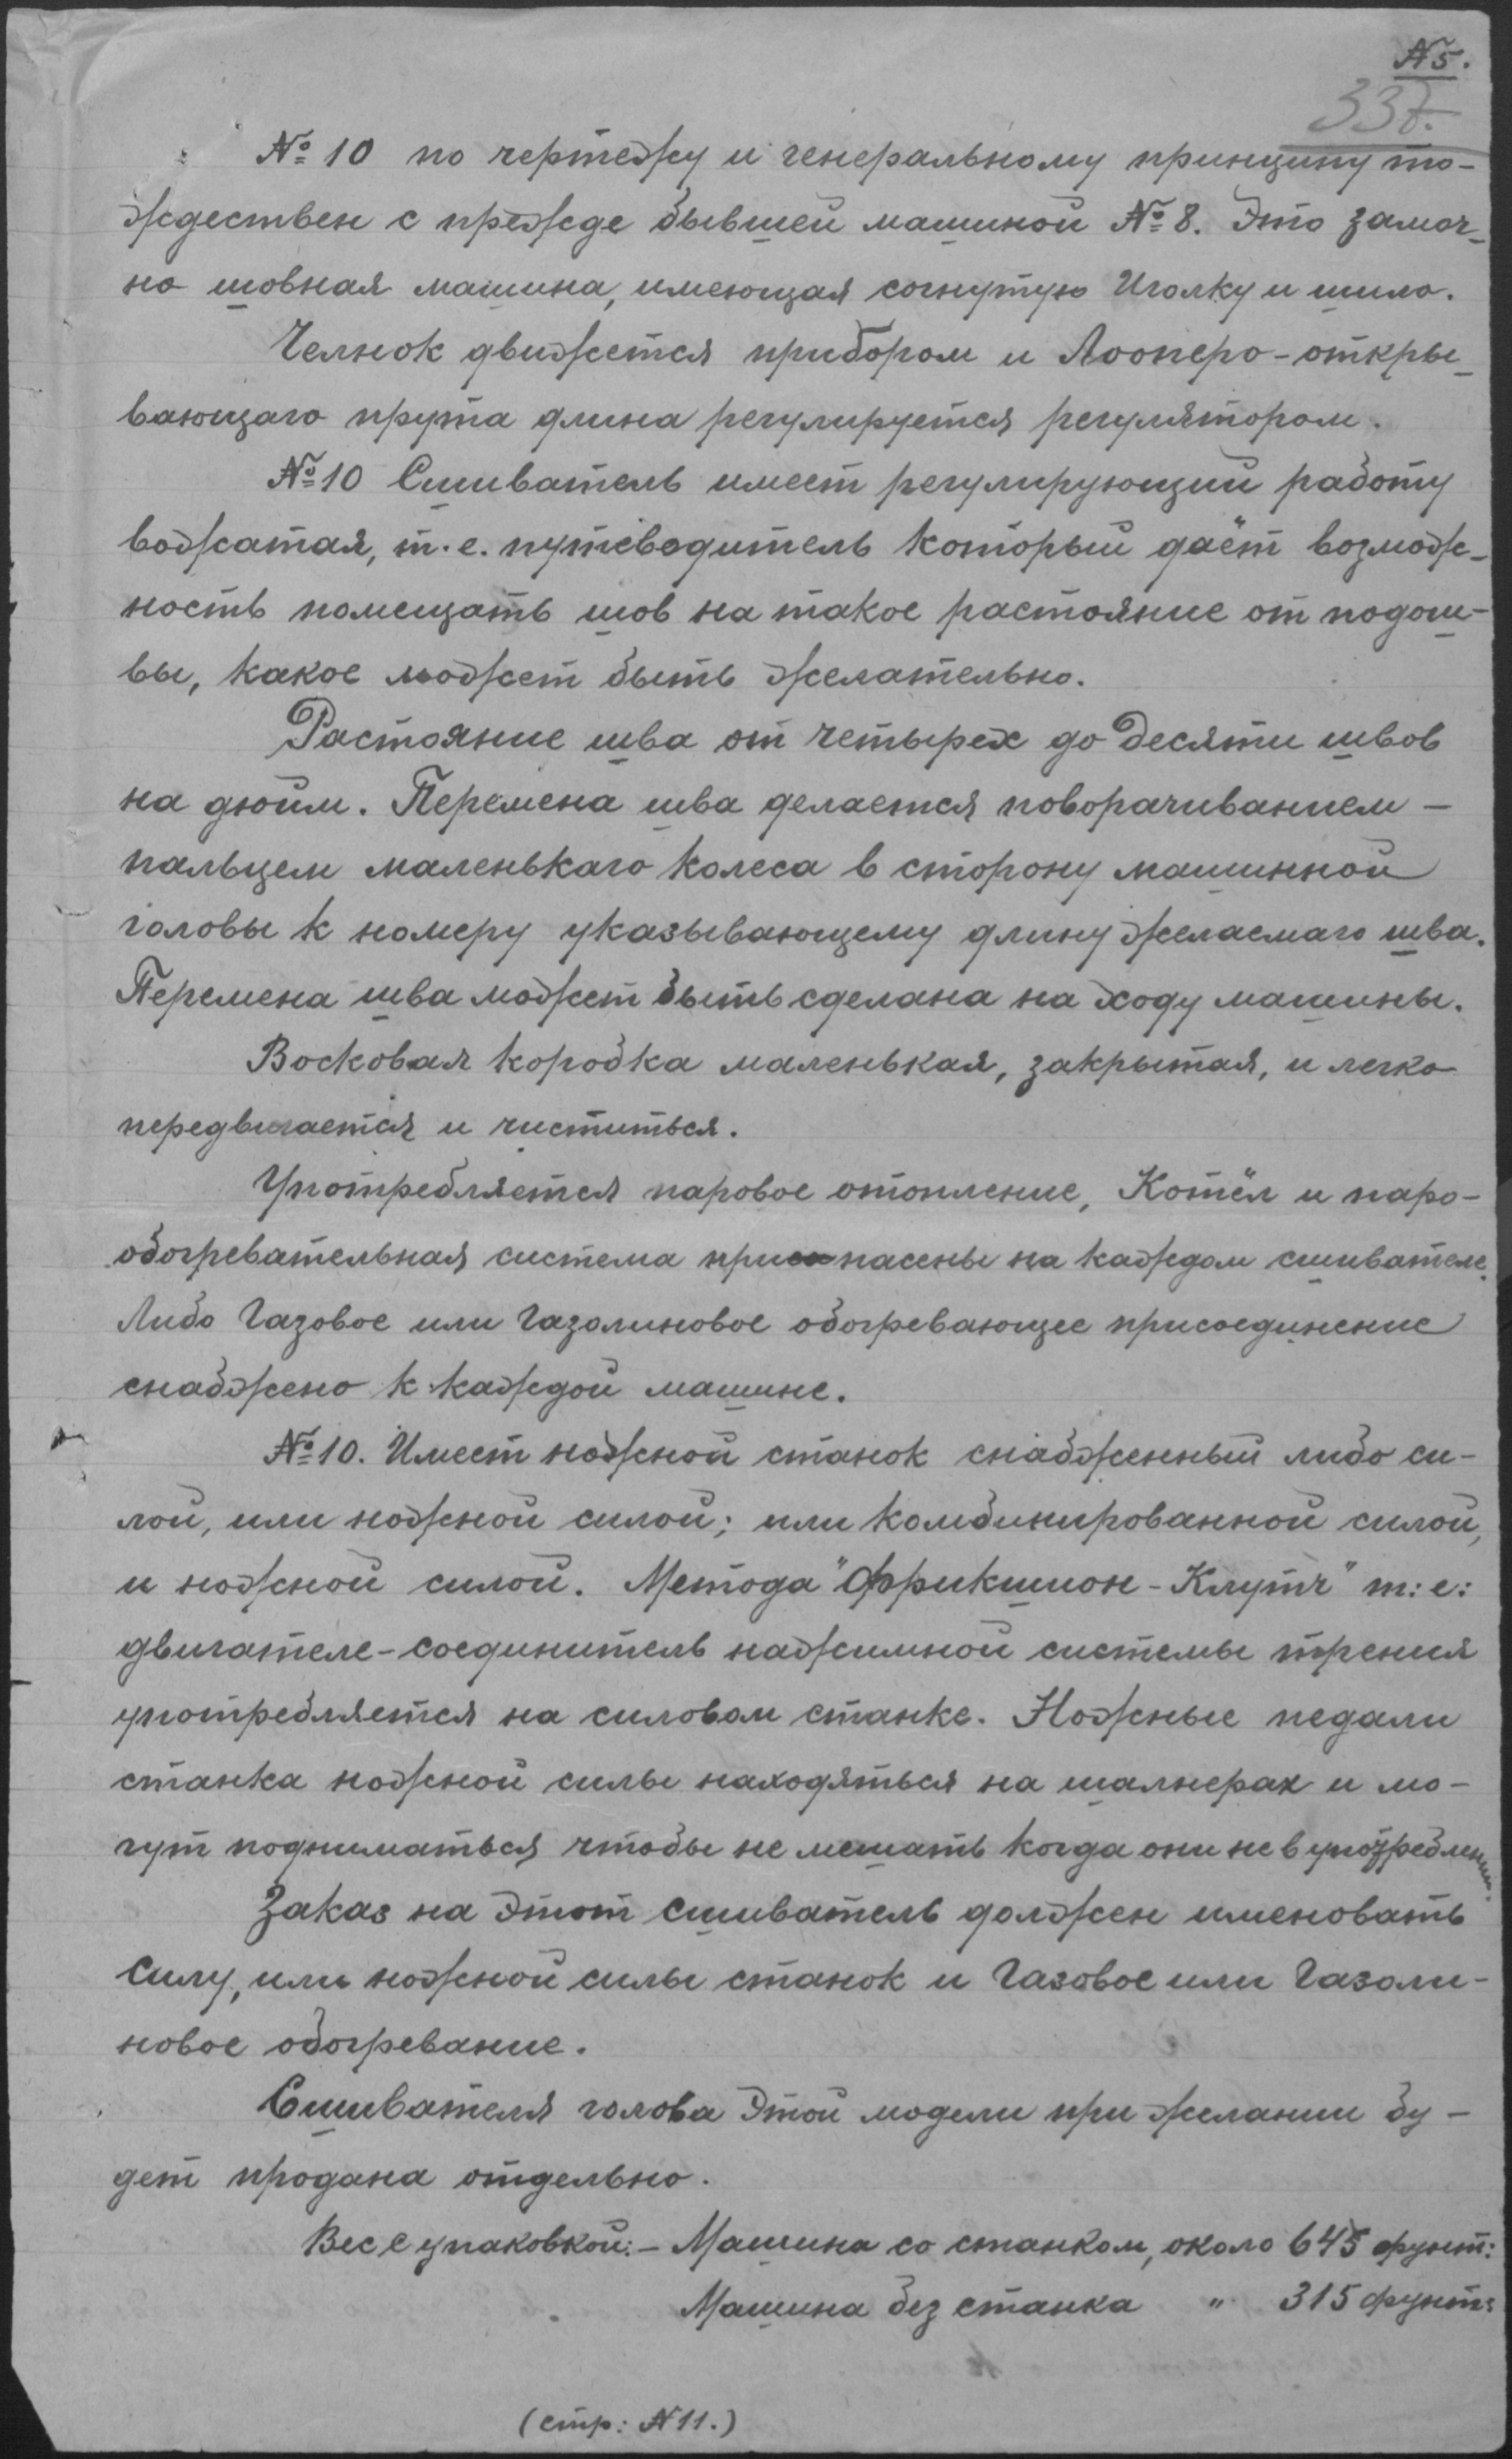 N 5.
337.
№ 10 по чертежу и генеральному принципу то-
ждествен с прежде бывшей машиной № 8. Это замоч-
но шовная машина, имеющая согнутую Иголку и шило.
Челнок движется прибором и Лооперо-откры-
вающаго прута длина регулируется регулятором.
№ 10 Сшиватель имеет регулирующий работу
вожатая, т.е. путеводитель который даёт возмож-
ность помещать шов на такое растояние от подош-
вы, какое может быть желательно.
Растояние шва от четырех до десяти швов
на дюйм. Перемена шва делается поворачиванием -
пальцем маленькаго колеса в сторону машинной
головы к номеру указывающему длину желаемаго шва.
Перемена шва может быть сделана на ходу машины.
Восковая коробка маленькая, закрытая, и легко
передвигается и чиститься.
Употребляется паровое отопление, Котёл и паро-
обогревательная система припасены на каждом сшивателе.
Либо Газовое или Газолиновое обогревающее присоединение
снабжено к каждой машине.
№ 10. Имеет ножной станок снабженный либо си-
лой, или ножной силой; или комбинированной силой,
и ножной силой. Метода "Фрикшион-Клутч" т: е:
двигателе-соединитель нажимной системы трения
употребляется на силовом станке. Ножные педали
станка ножной силы находяться на шалнерах и мо-
гут подниматься чтобы не мешать когда они не в употреблении.
Заказ на этот сшиватель должен именовать
силу, или ножной силы станок и Газовое или Газоли-
новое обогревание.
Сшивателя голова этой модели при желании бу-
дет продана отдельно.
Вес с упаковкой: - Машина со станком, около 645 фунт:
Машина без станка " 315 фунт:
(стр: N 11.)